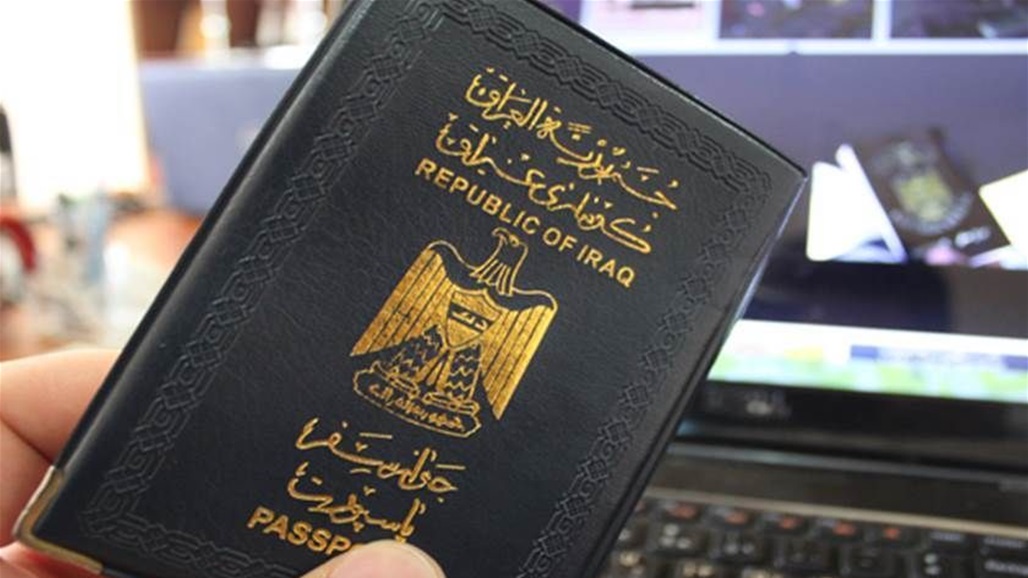 جمهورية العراق
كۆماری عێراق
REPUBLIC OF IRAQ
جواز سفر
پاسپۆرت
PASSP